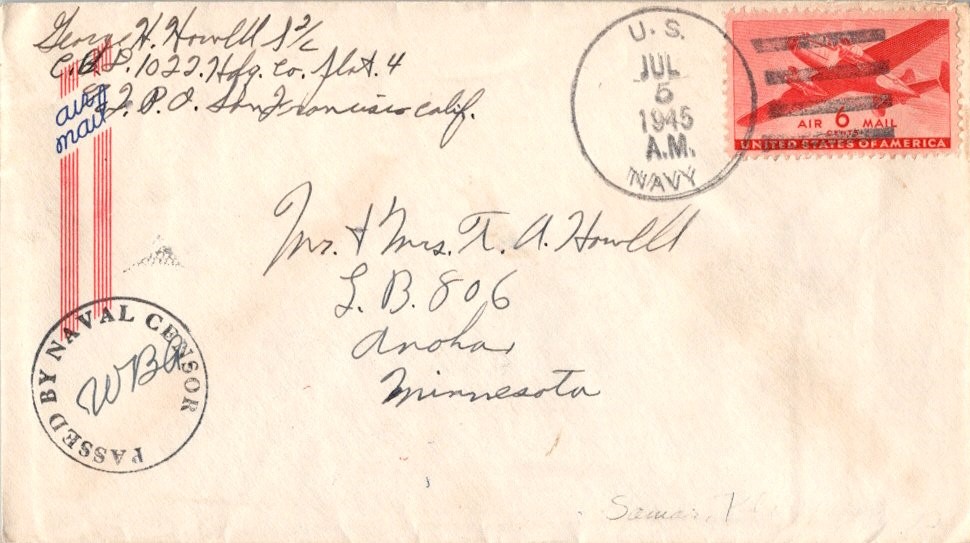 George H. Howell S 2/c
C.B.D. 1022. Hdq. Co. Plat. 4
F.P.O. San Francisco Calif.
air
mail
U. S.
JUL
5
1945
A.M.
NAVY
AIR 6 MAIL
CENTS
UNITED STATES OF AMERICA
Mr. & Mrs. T. A. Howell
L. B. 806
Anoka
Minnesota
PASSED BY NAVAL CENSOR
WBA
Samar,